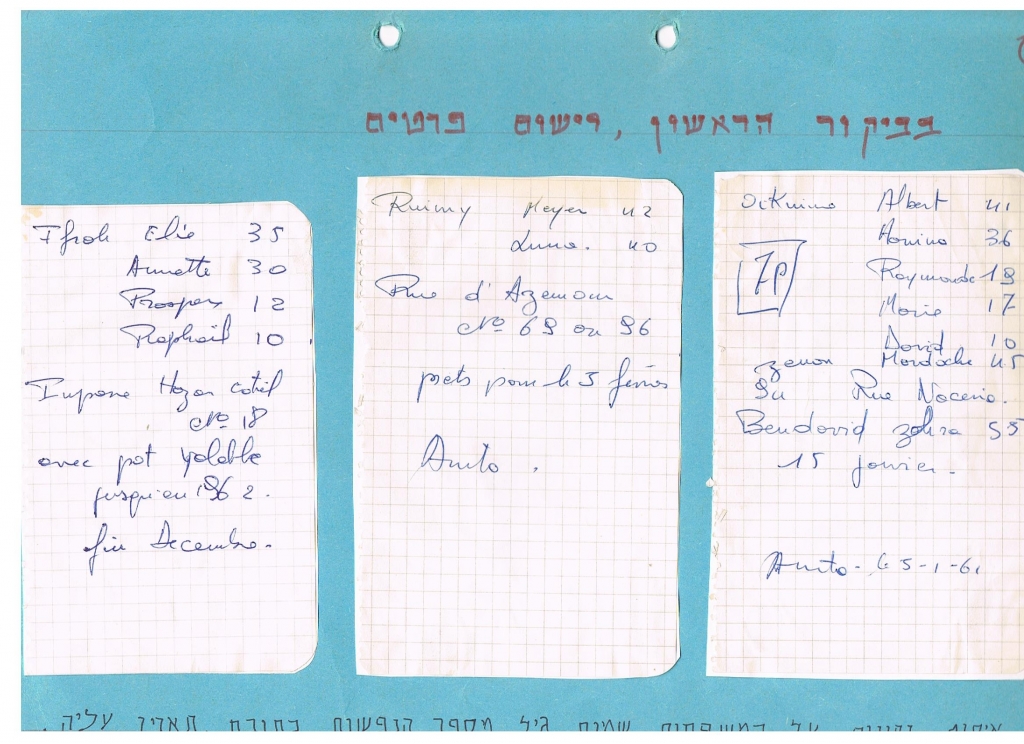 בביקור הראשון, רישום פרטים
Ifrah Elie 35
Annette 30
Prosper 12
Raphaël 10
Impasse Hazan
No 18
avec pot Yolable
jusqu'en 1962.
fin Decembre.
Ruimy Meyer 42
Luna. 40
Rue d'Azemour
No 69 ou 96
prets pour le 3 février
Anito.
Albert 41
Honina 36
Raymonde 19
7p
Marie 17
David 10
Mordoche 45
Rue Naceria.
Bendavid Zohra 55
15 janvier.
Anito - le 5-1-61
על המשפחות שמות גיל מספר הנפשות כתובת תאריך עליה